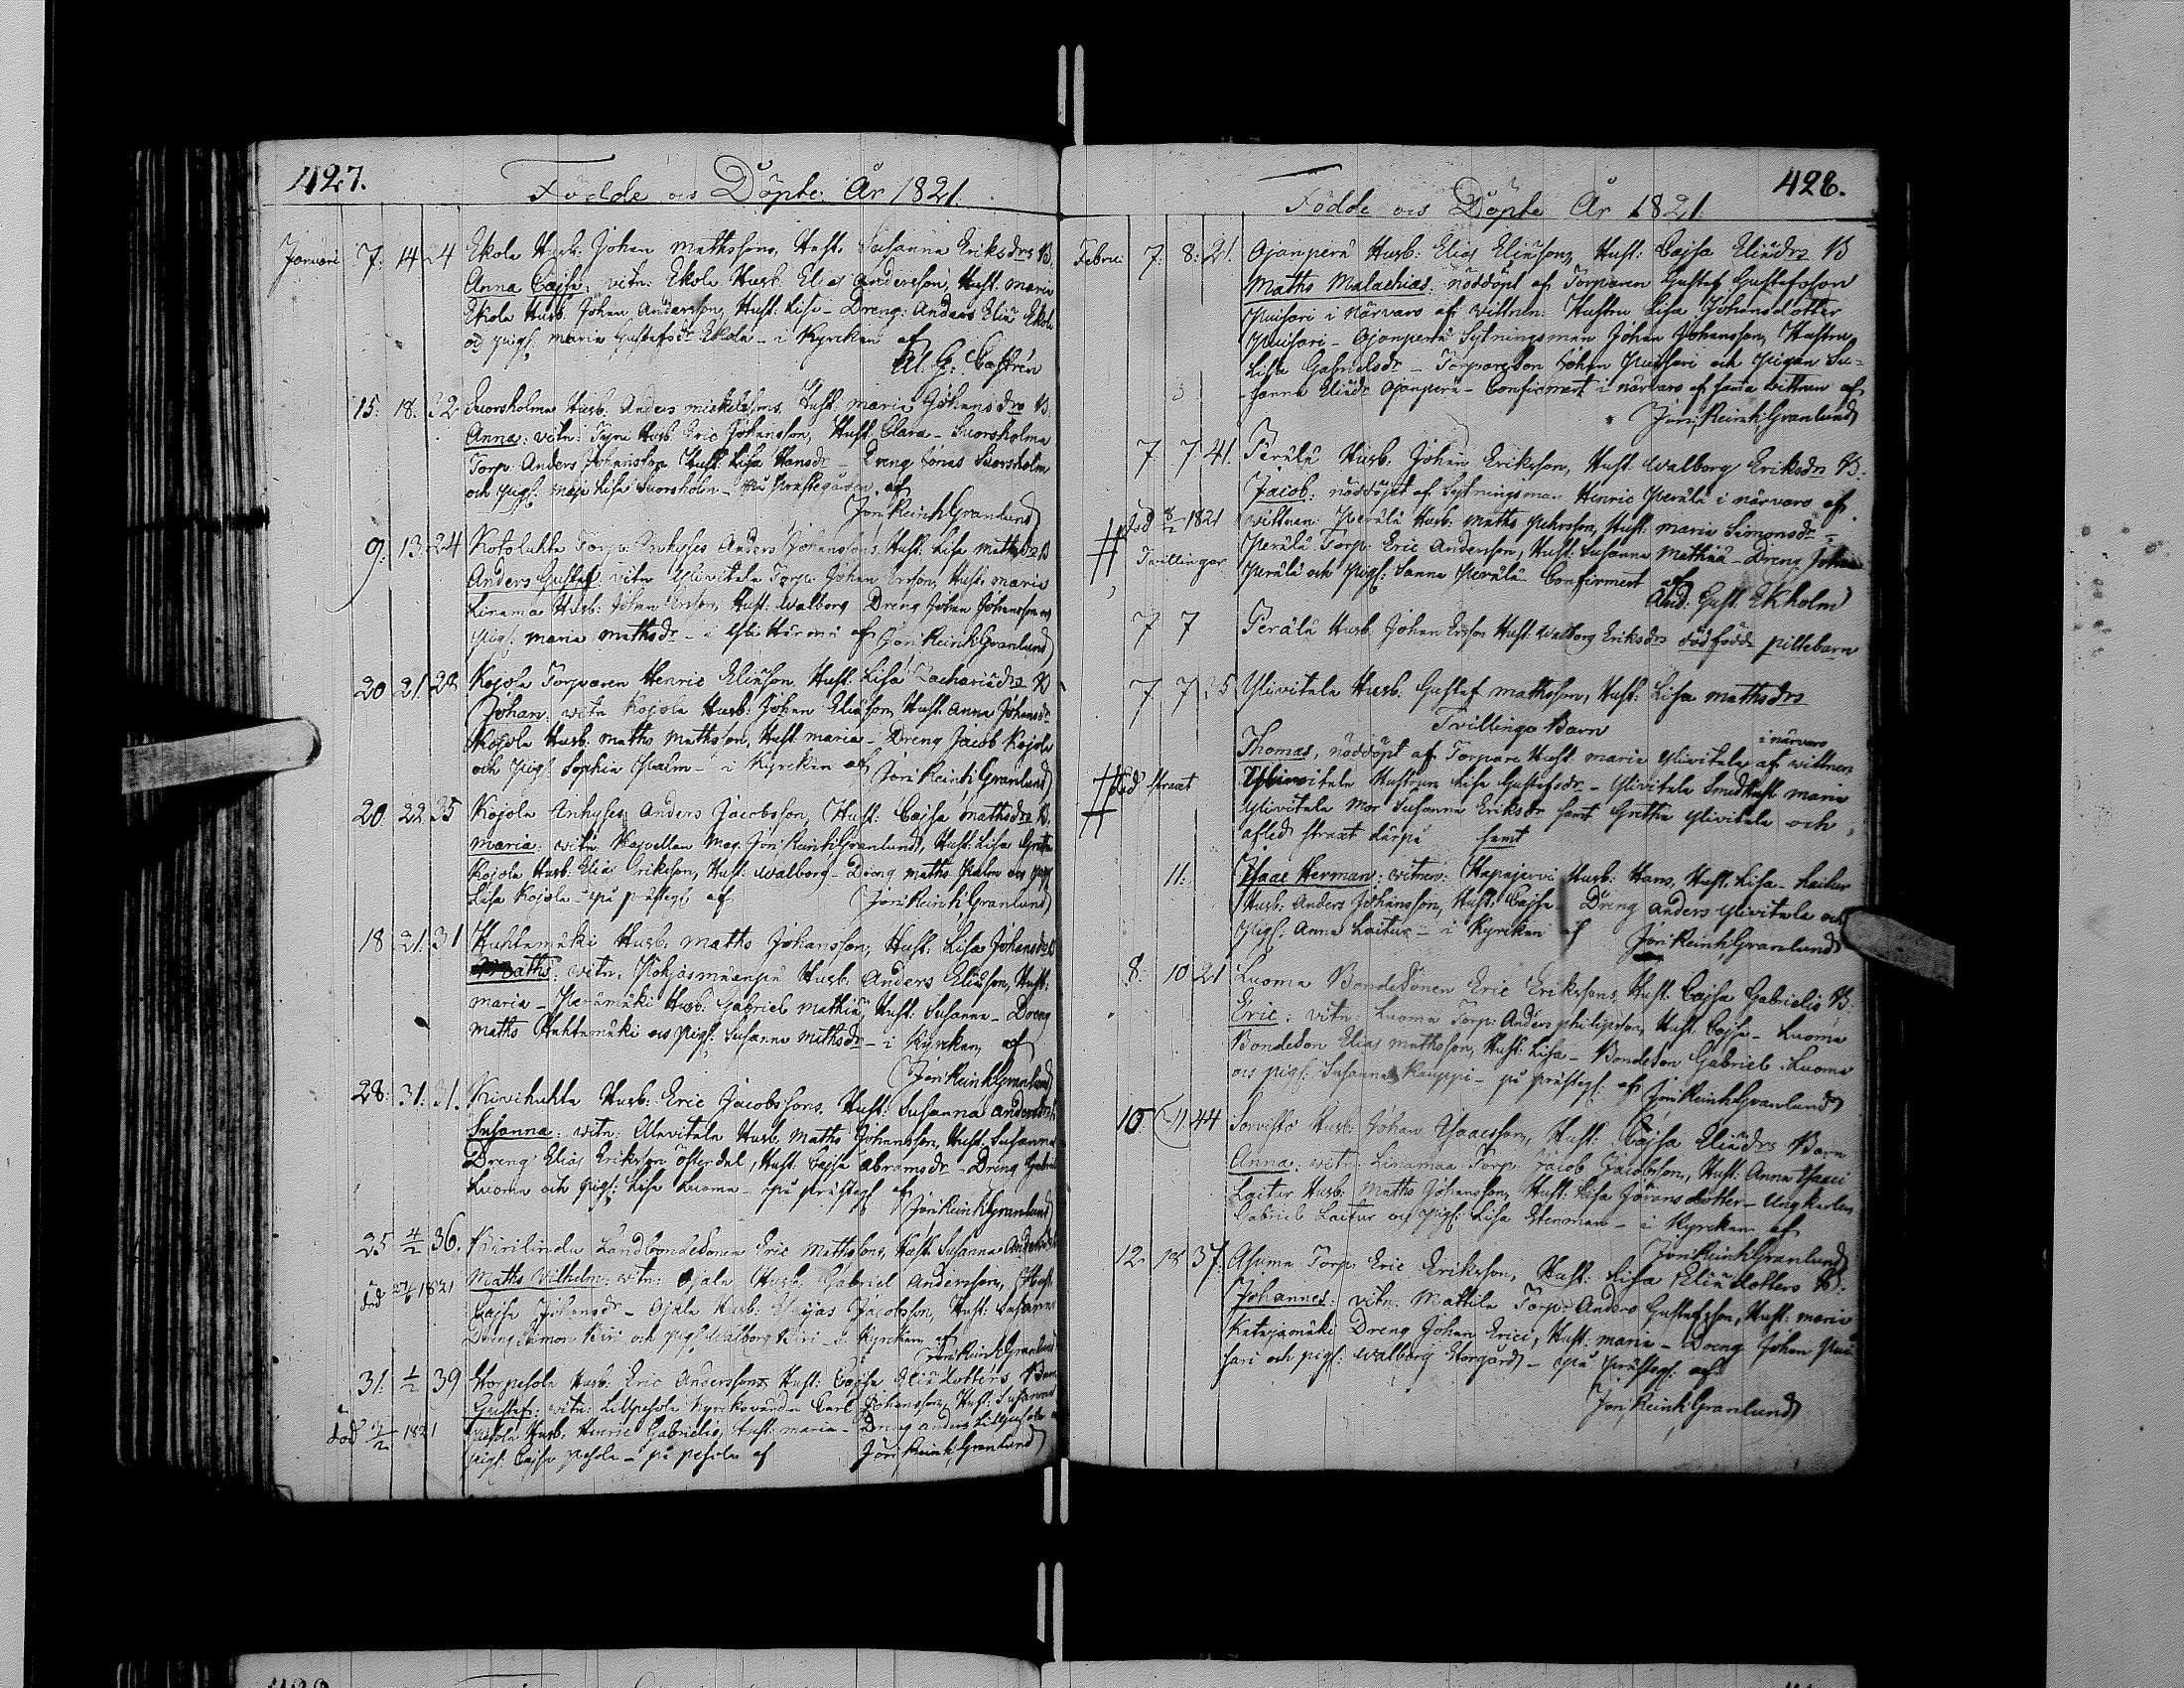 427.
Födde och Döpte År 1821.
Januari 7. 14 24 Ekola Husb: Johan Mathssons, Hust. Susanna Eriksdrs B.
Anna Cajsa, vitn: Ekola Husb. Elias Andersson, Hust. Maria
Ekola Husb. Johan Andersson, Hust: Lisa - Dreng: Anders Eliæ Ekola
och pig: Maria Gustafsdr Ekola - i Kyrckan af
Castrén
15. 18. 32 Luorsholma Husb. Anders Mickelssons, Hust. Maria Johansdrs B.
Anna: vitn: Husb. Eric Johansson, Hust. Clara - Luorsholma
Torp. Anders Johansson, Hust. Lisa Hansdr - Dreng Jonas Luorsholm
och pig: Maja Lisa Luorsholm - på Prästegården af
Jon: Reinh: Granlund
9. 13. 24 Kotoluhta Torp. Inhyses Anders Johanssons Hust. Lisa Mathsdrs B
Anders Gustaf. vitn Ylivitala Torp. Johan Ersson, Hust. Maria
Linama Husb: Johan Ersson, Hust: Walborg Dreng Johan Johansson
Pig. Maria Mathsdr - i af Jon: Reinh: Granlund
20 21. 28 Kojola Torparen Henric Eliæson, Hust: Lisa Zachariædrs B
Johan. vitn Kojola Husb: Johan Eliæson, Hust. Anna Johansdr
Kojola Husb. Maths Mathsson, Hust Maria - Dreng Jacob Kojola
och Pig: Sophia Palm - i Kyrckan af Jon: Reinh: Granlund
20. 22. 35 Kojola Inhyses Anders Jacobsson, Hust: Cajsa Mathsdrs B.
Maria: vitn: Capellan Mag. Jon: Reinh: Granlund, Hust: Lisa Greta
Kojola Husb: Elias Eriksson, Hust: Walborg - Dreng Maths Palm och pig:
Lisa Kojola - på prästeg: af Jon: Reinh: Granlund
18. 21. 31 Huhtamäki Husb. Maths Johansson, Hust: Lisa Johansdrs B
Maths: vitn. Husb. Anders Eliæson, Hust:
Maria - Perämäki Husb: Gabriel Mathiæ, Hust: Susanna - Dreng
Maths Huhtamäki och Pig: Susanna Mathsdr - i Kyrckan af
Jon: Reinh: Granlund
28. 31. 31. Kivihuhta Husb: Eric Jacobssons Hust: Susanna Andersdrs
Susanna: vitn: Alavitala Husb. Maths Johansson, Hust. Susanna
Dreng Elias Eriksson Österdal, Hust: Cajsa Abramsdr - Dreng Gabriel
Luoma och Pig: Lisa Luoma - på Prästeg: af Jon: Reinh: Granlund
25 4/2 36. Landbondesonen Eric Mathssons, Hust. Susanna
Maths Vilhelm: vitn: Ojala Husb: Gabriel Andersson, Hust.
död 1821 Cajsa Johansdr - Ojala Husb: Jacobsson, Hust: Susanna
Dreng Simon och pig: Walborg - i Kyrckan af
Jon: Reinh: Granlund
31. 1/2 39 Storpesola Husb. Eric Anderssons Hust: Cajsa Eliædotters Barn
Gustaf: vitn: Lillpesola Kyrkovärden Carl Johansson, Hust: Susanna
död 1821 Pesola Husb. Henric Gabrielis, Hust. Maria - Dreng Anders Lillpesola
Pig: Cajsa Pesola - på Pesola af Jon: Reinh: Granlund
428.
Födde och Döpte År 1821.
Februi 7. 8: 21. Ojanperä Husb: Elias Eliæsons, Hust: Cajsa Eliædrs B
Maths Malachias: nöddöpt af Torparen Gustaf Gustafsson
Puisari i närvaro af Wittnen: Hustru Lisa Johansdotter
Puisari - Ojanperä Sytningsman Johan Johansson, Hustru
Lisa Gabrielsdr - Torparesson Johan Puisari och Pigan Su-
sanna Eliædr Ojanperä - Confirmert i närvaro af samma wittnen af
Jon: Reinh: Granlund
7 7 41. Perälä Husb. Johan Eriksson, Hust. Walborg Eriksdrs B.
Jacob: nöddöpt af Sytningsman Henric Perälä i närvaro af
död 8/2 1821 wittnen: Perälä Husb: Maths Pehrsson, Hust: Maria Simonsdr -
Tvillingar Perälä Torp. Eric Andersson, Hust: Susanna Mathiæ - Dreng Johan
Perälä och Pig: Sanna Perälä - Confirmert af
And: Gust. Ekholm
7 7 Perälä Husb. Johan Ersson Hust: Walborg Eriksdrs dödfödde piltebarn
7. 7 35 Ylivitala Husb: Gustaf Mathsson, Hust: Lisa Mathsdrs
Tvillinge Barn
Thomas, nöddöpt af Torpare Hust Maria Ylivitala i närvaro af wittnen
död straxt Ylivitala Hustrun Lisa Gustafsdr - Ylivitala Smedhust Maria
Ylivitala Mor Susanna Eriksdr samt Gretha Ylivitala och
afled straxt därpå samt
11: Isaac Herman: witnen: Hapajervi Husb: Hans, Hust. Lisa - Laitur
Husb: Anders Johansson, Hust: Cajsa - Dreng Anders Ylivitala och
Pig: Anna Laitur - i Kyrckan af Jon: Reinh: Granlund
8. 10 21 Luoma Bondesonen Eric Erikssons, Hust: Cajsa Gabrielis B:
Eric: vitn: Luoma Torp: Anders Philipsson, Hust. Cajsa - Luoma
Bondeson Elias Mathsson, Hust: Lisa - Bondeson Gabriel Luoma
och pig: Susanna Kauppi - på prästeg: af Jon: Reinh: Granlund
10. 11. 44 Sorvisto Husb: Johan Isaacsson, Hust: Cajsa Eliædrs Barn
Anna: vitn: Linamaa Torp Jacob Jacobsson, Hust: Anna Isaaci
Laitur Husb: Maths Johansson, Hust: Lisa Göransdotter - Ungkarlen
Gabriel Laitur och Pig: Lisa Stenman - i Kyrckan af
Jon: Reinh: Granlund
12. 18 37. Asuma Torp. Eric Eriksson, Hust: Lisa Eliædotters B:
Johannes: vitn: Mattila Torp: Anders Gustafsson, Hust: Maria
Katajamäki Dreng Johan Erici, Hust: Maria - Dreng Johan Pui-
sari och pig: Walborg Storgård - på Prästeg: af
Jon: Reinh: Granlund